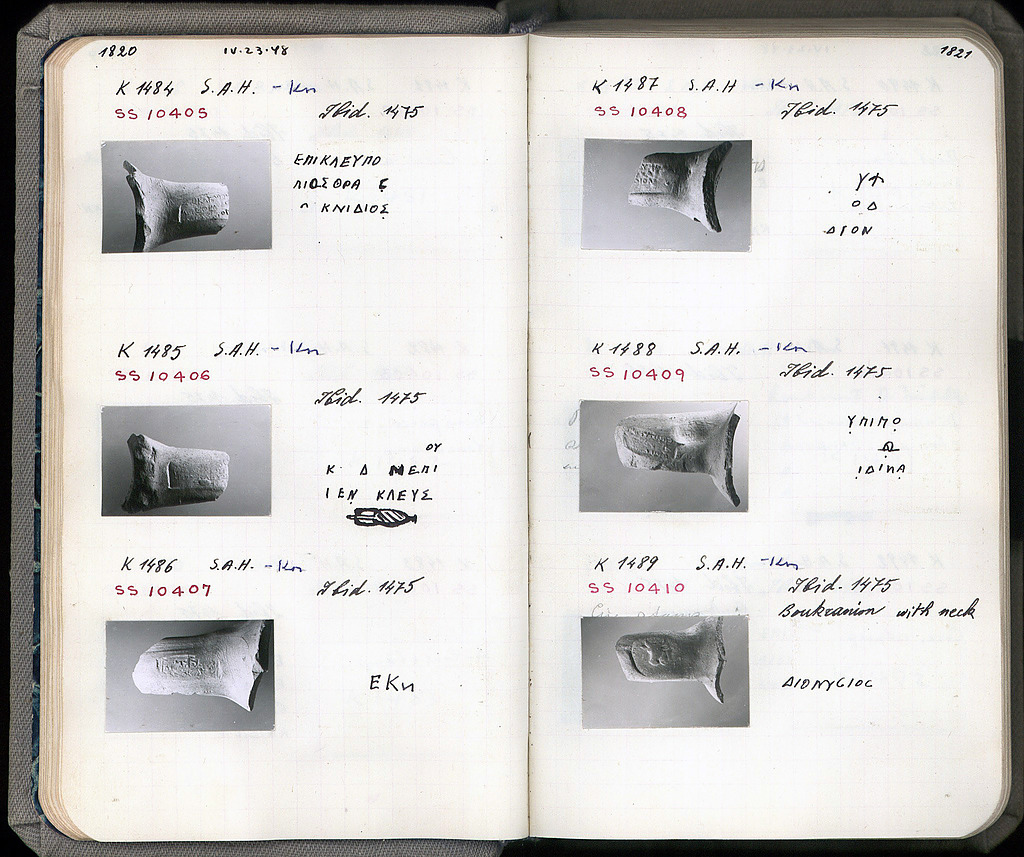 1820 IV·23·48
K 1484 S.A.H. - Kn
SS 10405 Ibid. 1475
ΕΠΙΚΛΕΥΠΟ
ΛΙΟΣΘΡΑ Ϲ
Ο ΚΝΙΔΙΟΣ
K 1485 S.A.H. - Kn
SS 10406
Ibid. 1475
ΟΥ
Κ· Δ ΝΕΠΙ
ΙΕΝ ΚΛΕΥΣ
K 1486 S.A.H. - Kn
SS 10407 Ibid. 1475
EKn
1821
K 1487 S.A.H - Kn
SS 10408 Ibid. 1475
ΟΔ
ΔΙΟΝ
K 1488 S.A.H. - Kn
SS 10409 Ibid. 1475
ΥΠΙΠΟ
Ω
ΙΔΙΠΑ
K 1489 S.A.H. - Kn
SS 10410 Ibid. 1475
Boukranion with neck
ΔΙΟΝΥϹΙΟϹ